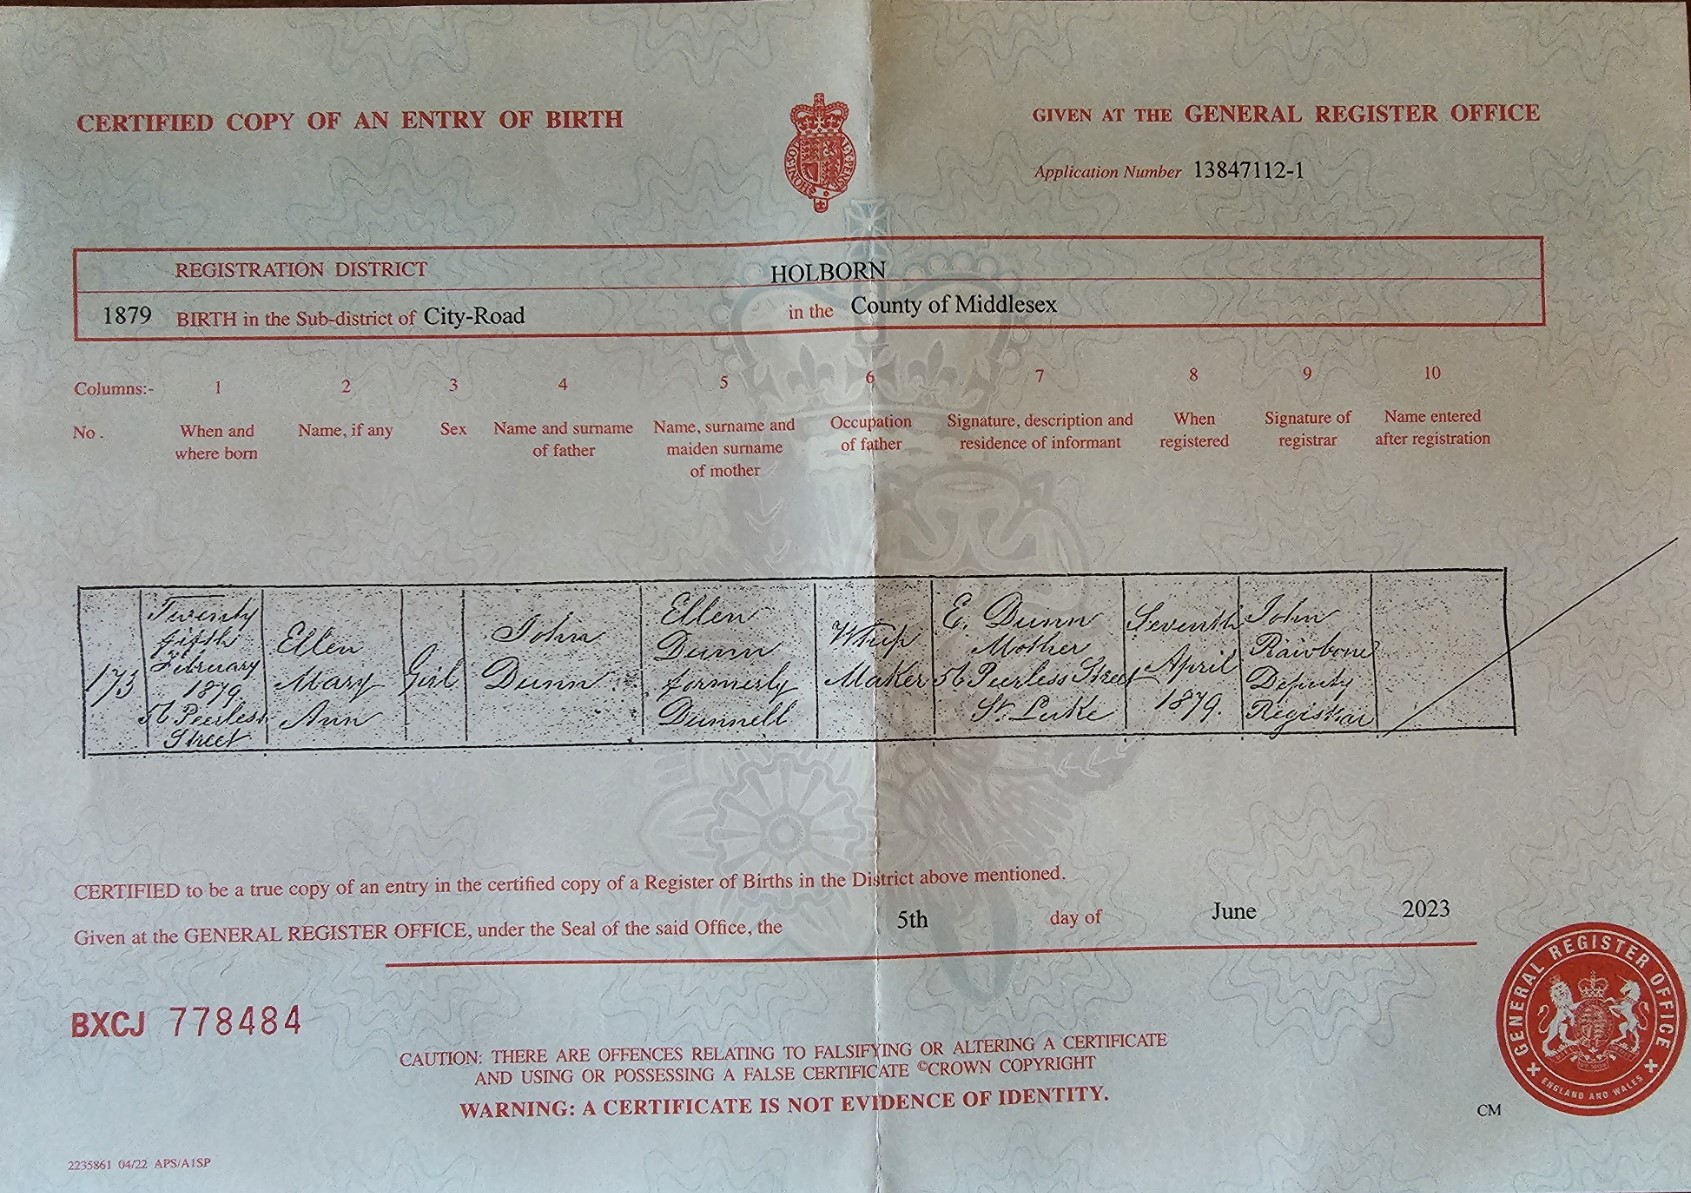 CERTIFIED COPY OF AN ENTRY OF BIRTH
GIVEN AT THE GENERAL REGISTER OFFICE
HONI SOI
Application Number 13847112-1
REGISTRATION DISTRICT HOLBORN
1879 BIRTH in the Sub-district of City-Road in the County of Middlesex
Columns:- 1 2 3 4 5 6 7 8 9 10
No. When and where born
Name, if any
Sex
Name and surname of father
Name, surname and maiden surname of mother
Occupation of father
Signature, description and residence of informant
When registered
Signature of registrar
Name entered after registration
173
Twenty
fifth
February
1879
Peerless
Street
Ellen
Mary
Ann
Girl
John
Dunn
Ellen
Dunn
formerly
Dunnell
Whip
Maker
E. Dunn
Mother
Peerless Street
St. Luke
Seventh
April
1879.
John
Rawbone
Deputy
Registrar
CERTIFIED to be a true copy of an entry in the certified copy of a Register of Births in the District above mentioned.
Given at the GENERAL REGISTER OFFICE, under the Seal of the said Office, the 5th day of June 2023
BXCJ 778484
CAUTION: THERE ARE OFFENCES RELATING TO FALSIFYING OR ALTERING A CERTIFICATE
AND USING OR POSSESSING A FALSE CERTIFICATE ©CROWN COPYRIGHT
WARNING: A CERTIFICATE IS NOT EVIDENCE OF IDENTITY.
GENERAL REGISTER OFFICE
ENGLAND AND WALES
CM
2235861 04/22 APS/A1SP